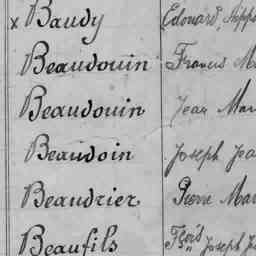 x Baudy Edouard, Hippo
Beaudouin Francis Ma
Beaudouin Jean Mar
Beaudoin Joseph Jea
Beaudrier Pierre Mar
Beaufils Fçois Joseph